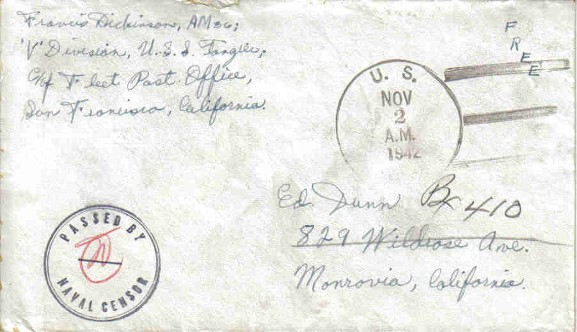 Francis Dickinson, AM3c;
'V' Division, U.S.S. Tangier,
c/o Fleet Post Office,
San Francisco, California.
FREE
U. S.
NOV
2
A.M.
1942
Ed Dunn Bx 410
829 Wildrose Ave.
Monrovia, California.
PASSED BY
NAVAL CENSOR